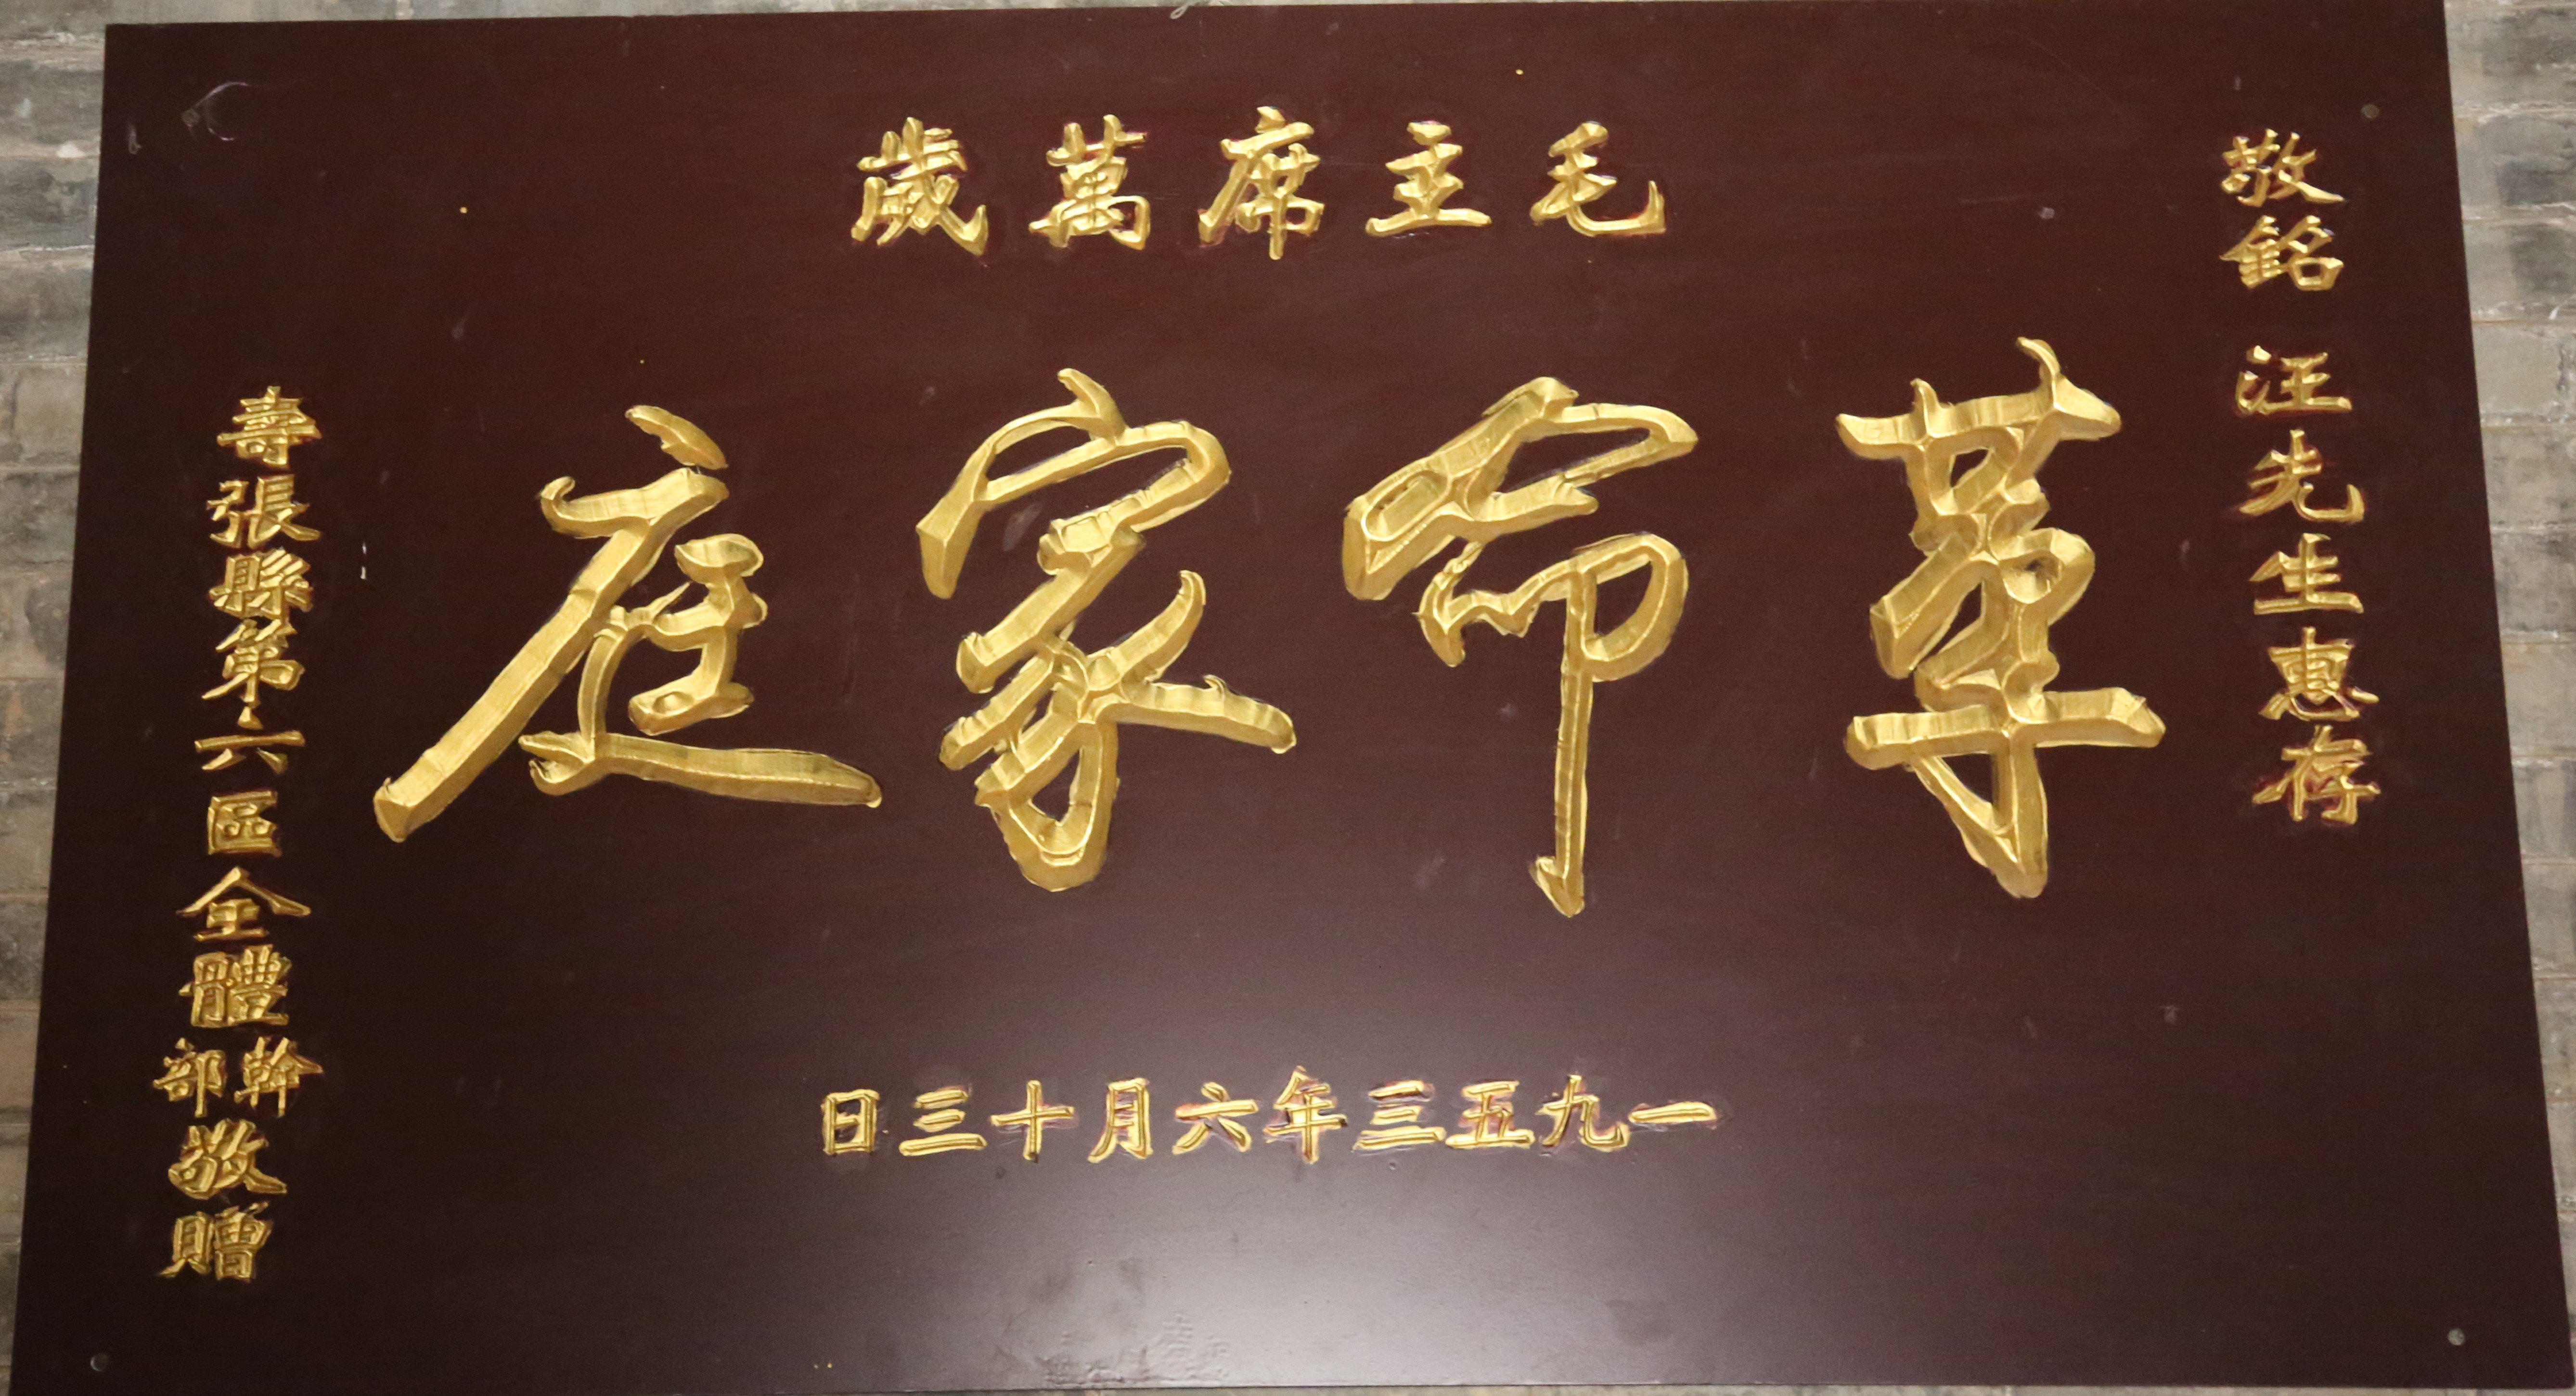 毛主席萬歲
敬銘 汪先生惠存
革命家庭
一九五三年六月十三日
壽張縣第六區全體幹部敬贈